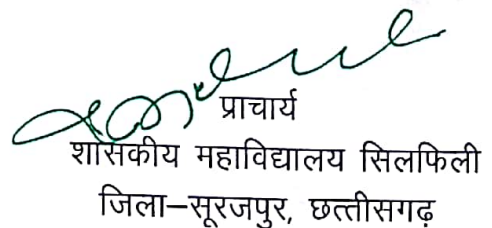 प्राचार्य
शासकीय महाविद्यालय सिलफिली
जिला–सूरजपुर, छत्तीसगढ़